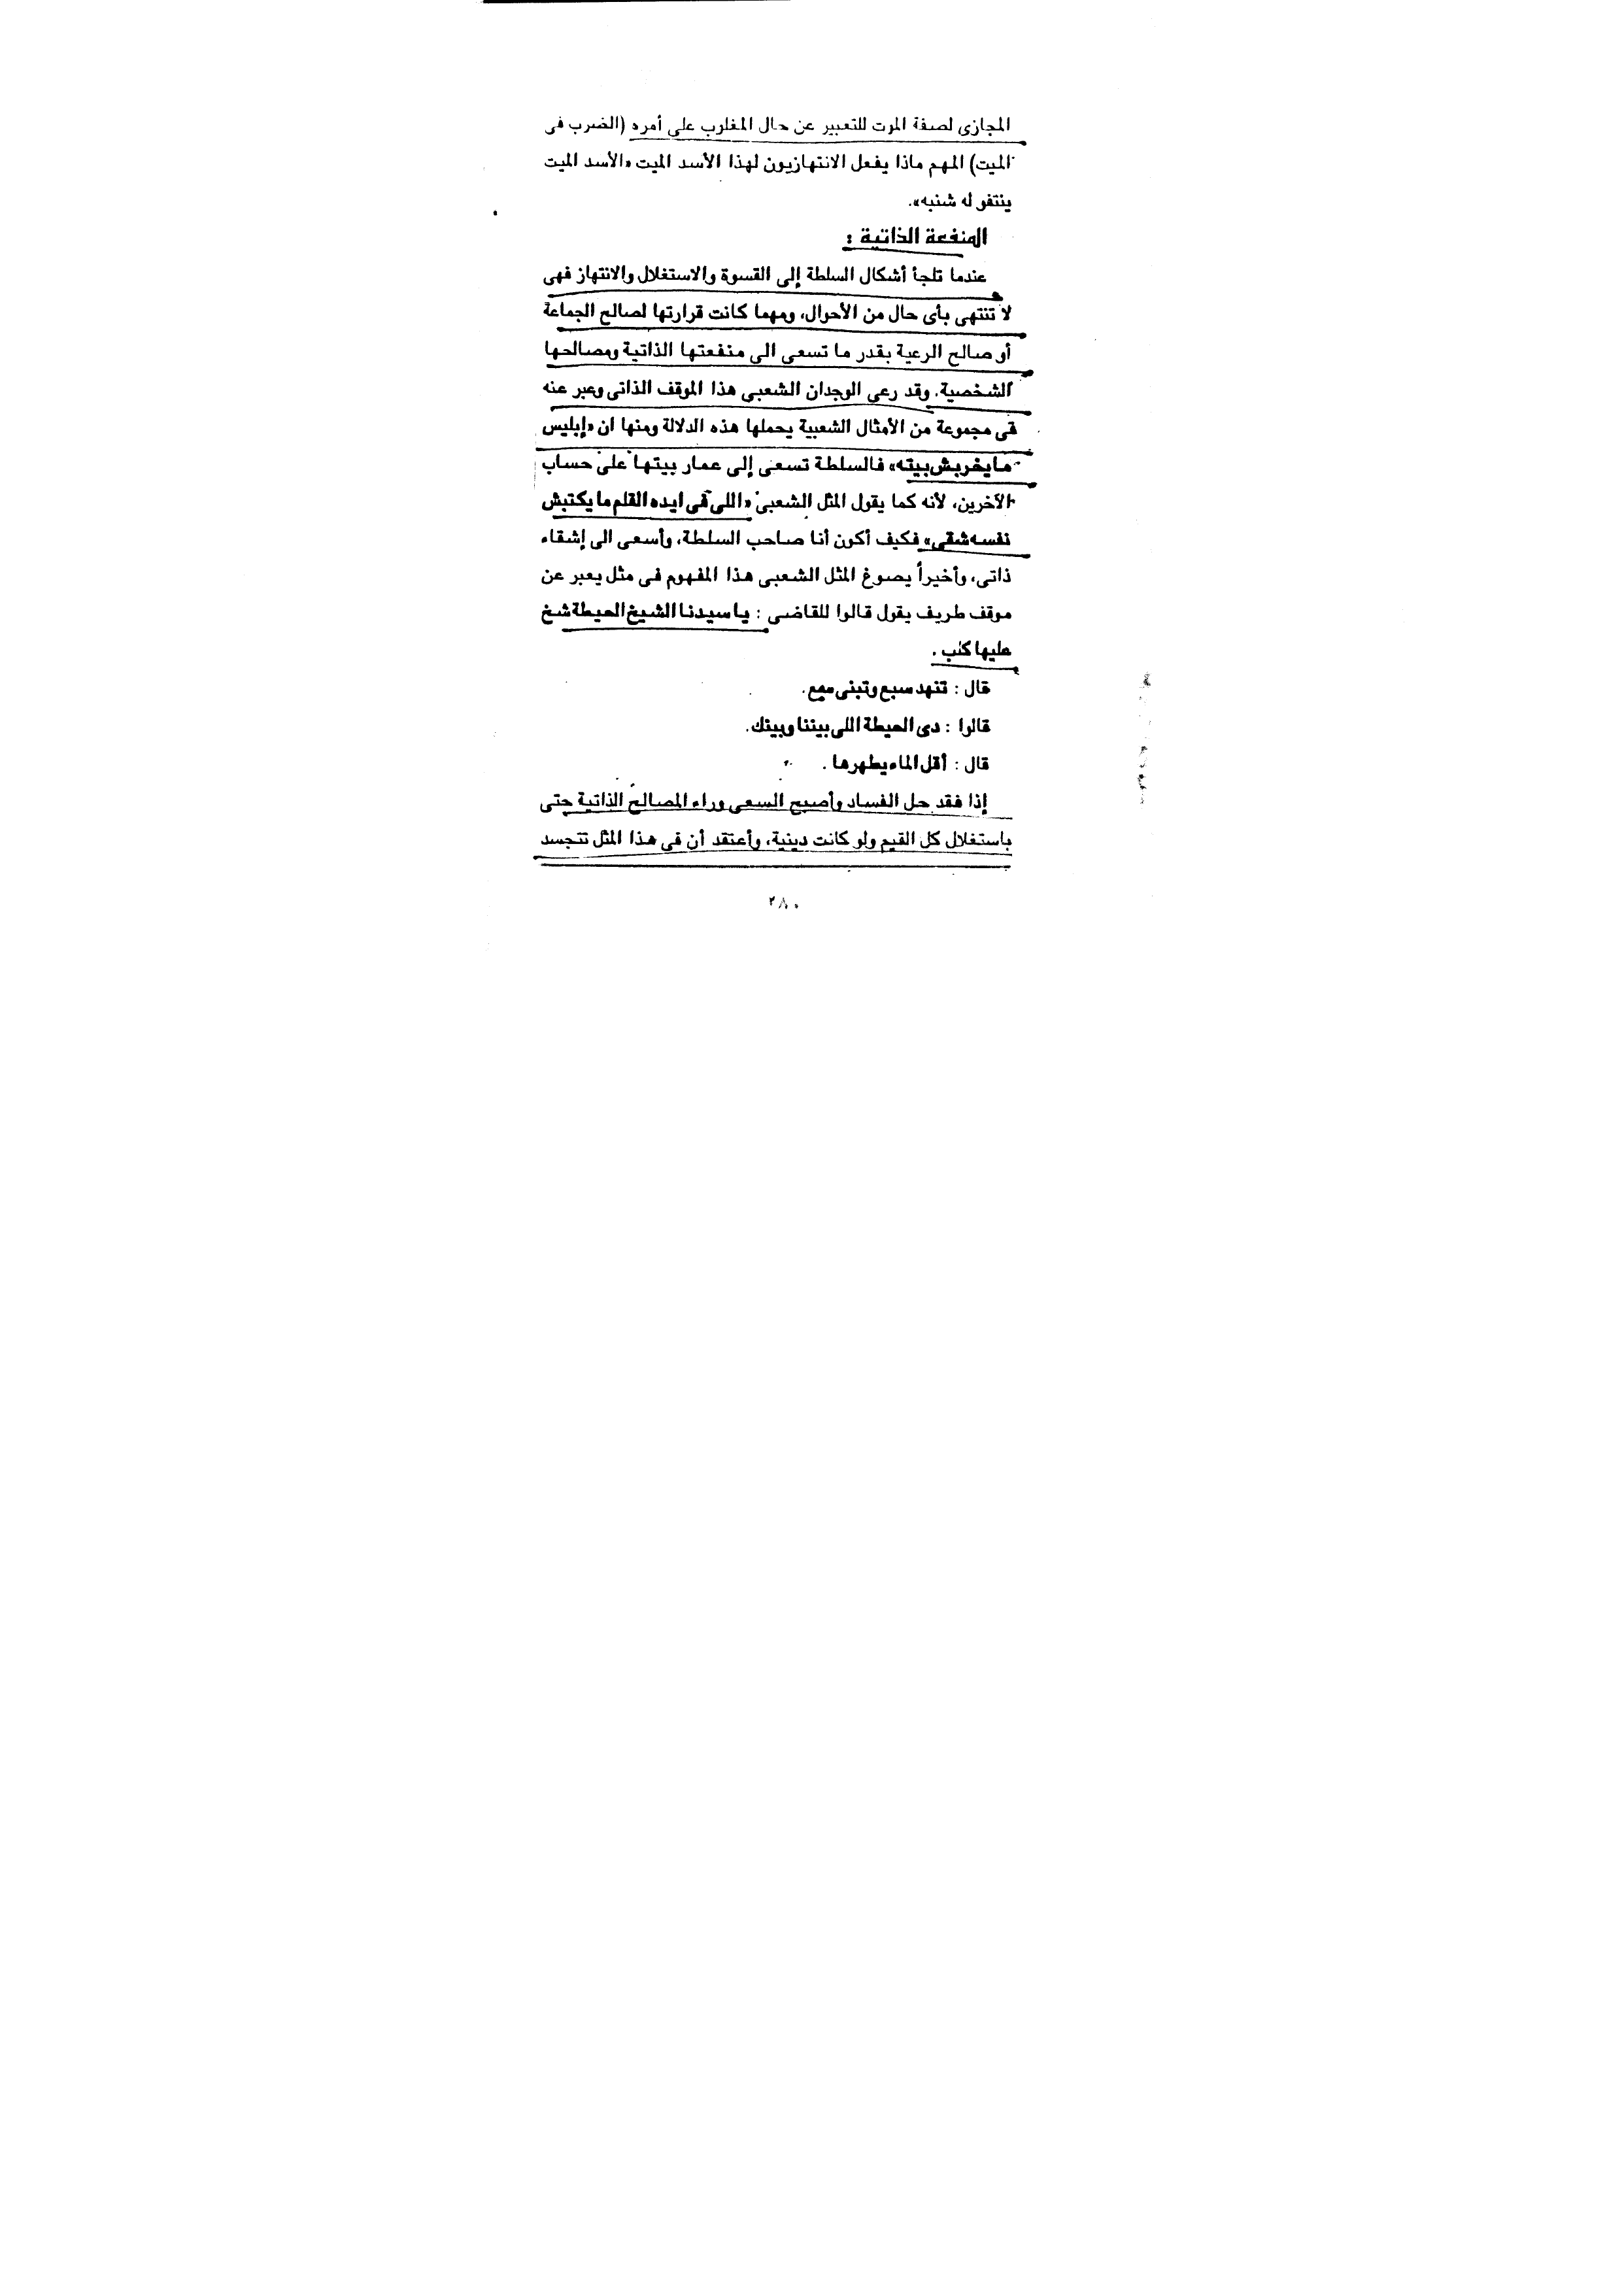 المجازى لصفة الموت للتعبير عن حال المغلوب على أمره (الضرب فى
الميت) المهم ماذا يفعل الانتهازيون لهذا الأسد الميت «الأسد الميت
ينتفو له شنبه».
المنفعة الذاتية :
عندما تلجأ أشكال السلطة إلى القسوة والاستغلال والانتهاز فهى
لا تنتهى بأى حال من الأحوال، ومهما كانت قرارتها لصالح الجماعة
أو صالح الرعية بقدر ما تسعى الى منفعتها الذاتية ومصالحها
الشخصية. وقد رعى الوجدان الشعبى هذا الموقف الذاتى وعبر عنه
فى مجموعة من الأمثال الشعبية يحملها هذه الدلالة ومنها ان «إبليس
ما يخربش بيته» فالسلطة تسعى إلى عمار بيتها على حساب
الآخرين، لأنه كما يقول المثل الشعبى «اللى فى ايده القلم ما يكتبش
نفسه شقى» فكيف أكون أنا صاحب السلطة، وأسعى الى إشقاء
ذاتى، وأخيراً يصوغ المثل الشعبى هذا المفهوم فى مثل يعبر عن
موقف طريف يقول قالوا للقاضى : يا سيدنا الشيخ الحيطة شخ
عليها كلب .
قال : تنهد سبع وتبنى سبع.
قالوا : دى الحيطة اللى بيننا وبينك.
قال : أقل الماء يطهرها .
إذا فقد حل الفساد وأصبح السعى وراء المصالح الذاتية حتى
باستغلال كل القيم ولو كانت دينية، وأعتقد أن فى هذا المثل تتجسد
٢٨٠